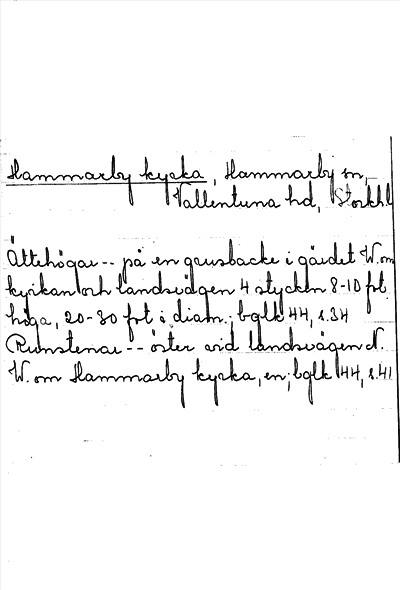 Hammarby kyrka, Hammarby sn,
Vallentuna hd, Stockhl
Ättehögar -- på en grusbacke i gärdet W. om
kyrkan och landsvägen 4 stycken 8-10 fot
höga, 20-30 fot i diam.; bglk 44, s.34
Runstenar -- öster vid landsvägen N.
W. om Hammarby kyrka, en; bglk 44, s.41